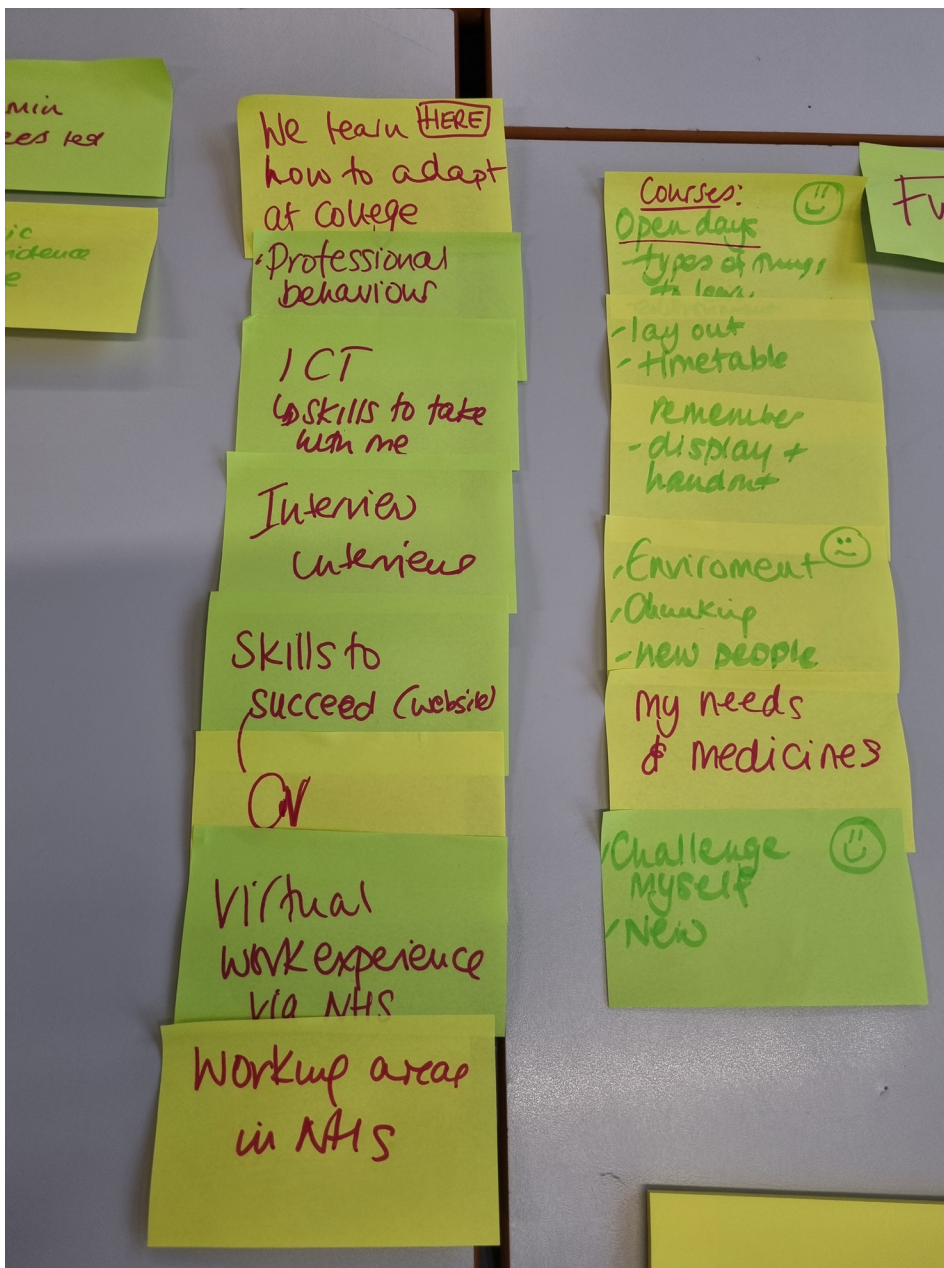 We learn HERE
how to adapt
at College
Professional
behaviour
ICT
↳ skills to take
with me
Interview
Skills to
succeed (website)
CV
Virtual
work experience
via NHS
Working areas
in NHS
Courses:
Open days
- types of things
to learn
- lay out
- timetable
remember
- display +
handout
- Enviroment
- new people
My needs
& medicines
Challenge
Myself
New